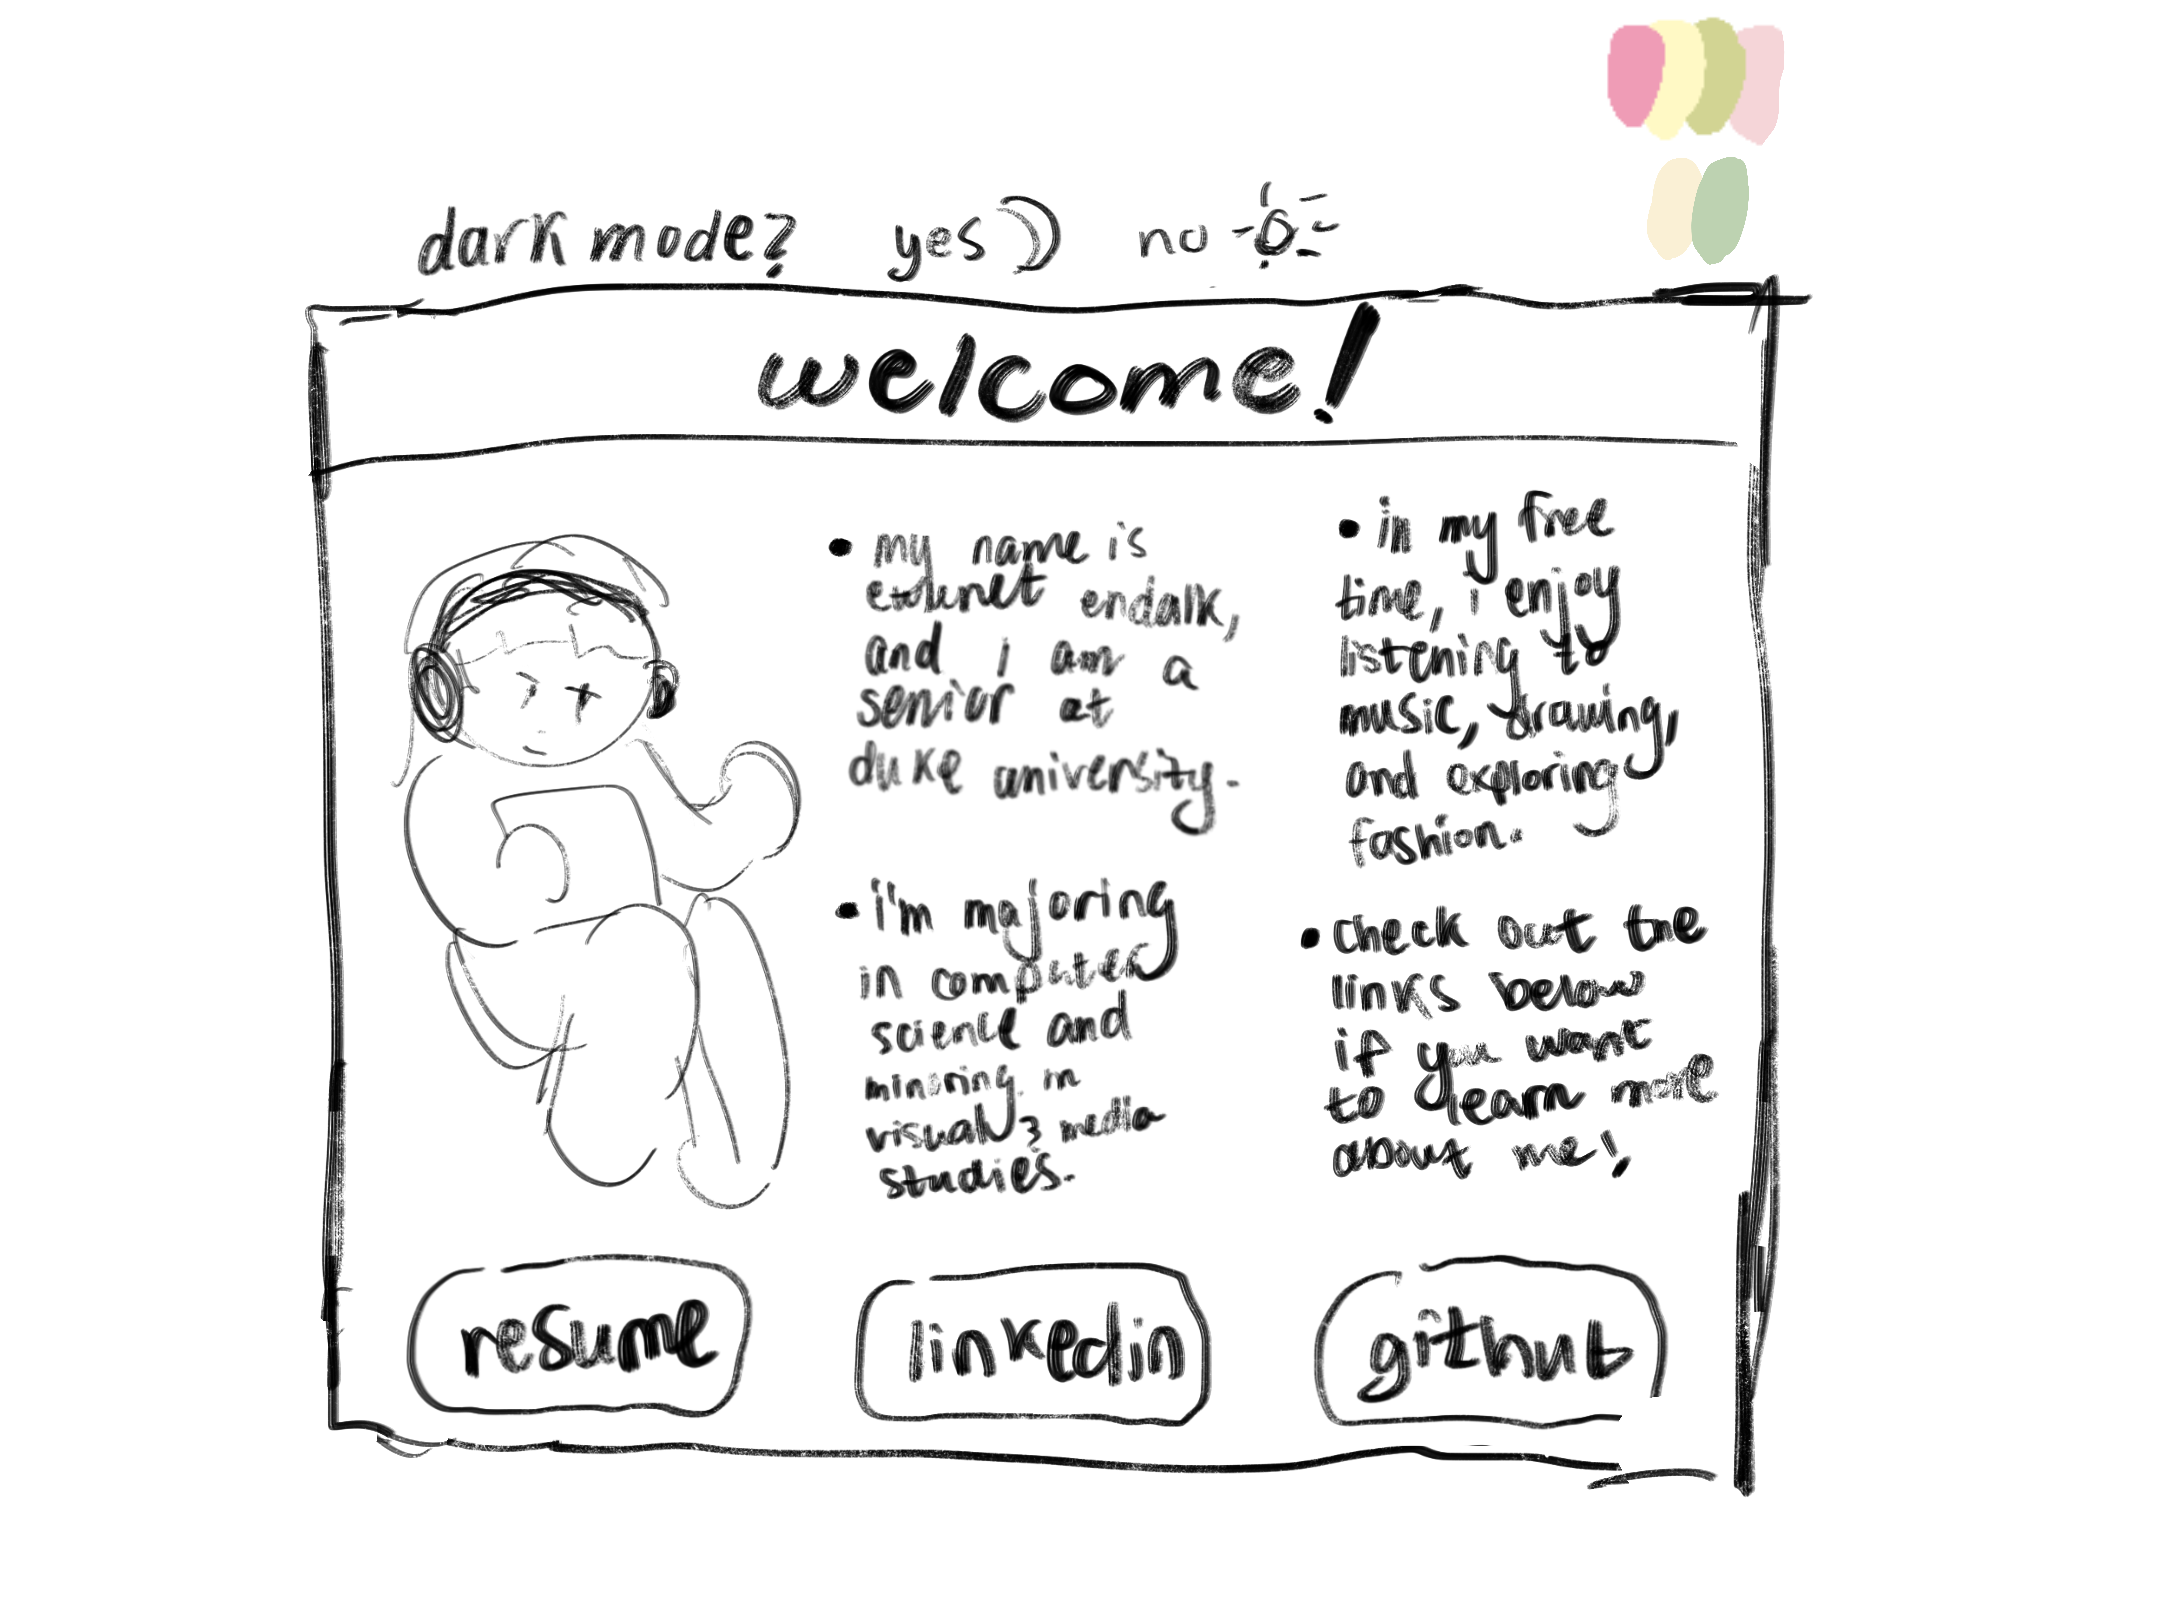 dark mode? yes no
welcome!
• my name is
endalk,
and i am a
senior at
duke university.
• i'm majoring
in computer
science and
minoring in
visual & media
studies.
• in my free
time, i enjoy
listening to
music, drawing,
and exploring
fashion.
• check out the
links below
if you want
to learn more
about me!
resume
linkedin
github